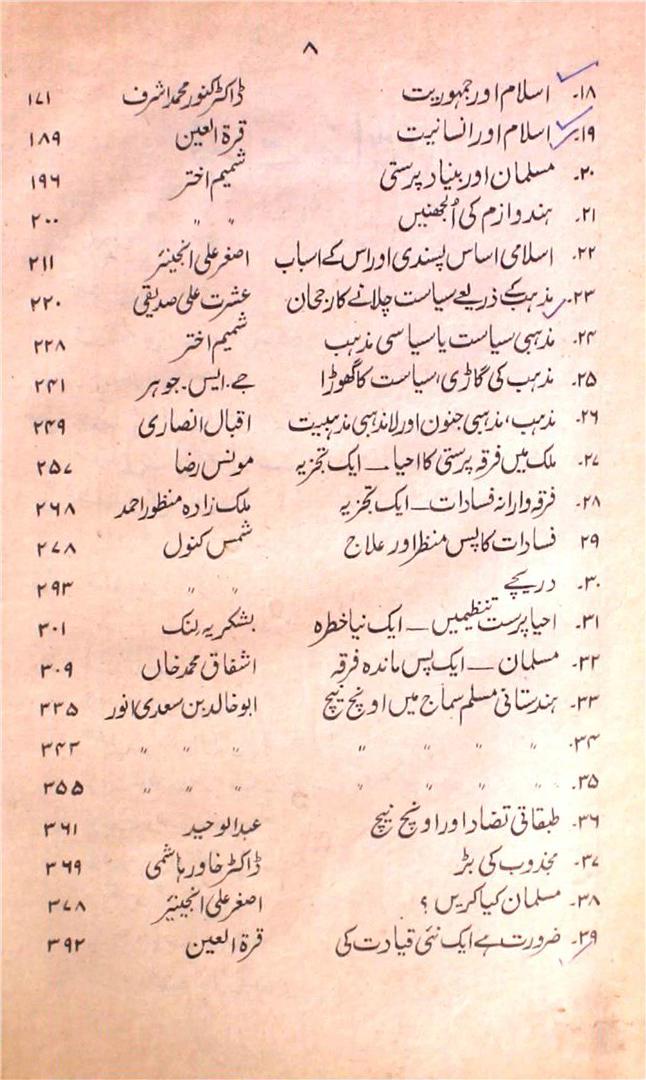 ۸
۱۸۔ اسلام اور جمہوریت ڈاکٹر کنور محمد اشرف ۱۷۱
۱۹۔ اسلام اور انسانیت قرۃ العین ۱۸۹
۲۰۔ مسلمان اور بنیاد پرستی شمیم اختر ۱۹۶
۲۱۔ ہندوازم کی اُلجھنیں " " ۲۰۰
۲۲۔ اسلامی اساس پسندی اور اس کے اسباب اصغر علی انجینئر ۲۱۱
۲۳۔ مذہب کے ذریعے سیاست چلانے کا رجحان عشرت علی صدیقی ۲۲۰
۲۴۔ مذہبی سیاست یا سیاسی مذہب شمیم اختر ۲۲۸
۲۵۔ مذہب کی گاڑی، سیاست کا گھوڑا جے۔ ایس۔ جوہر ۲۴۱
۲۶۔ مذہب، مذہبی جنون اور لا مذہبی مذہبیت اقبال انصاری ۲۴۹
۲۷۔ ملک میں فرقہ پرستی کا احیا ــ ایک تجزیہ مونس رضا ۲۵۷
۲۸۔ فرقہ وارانہ فسادات ــ ایک تجزیہ ملک زادہ منظور احمد ۲۶۸
۲۹ فسادات کا پس منظر اور علاج شمس کنول ۲۷۸
۳۰۔ دریچے " " ۲۹۳
۳۱۔ احیا پرست تنظیمیں ــ ایک نیا خطرہ بشکریہ لنک ۳۰۱
۳۲۔ مسلمان ــ ایک پس ماندہ فرقہ اشفاق محمد خاں ۳۰۹
۳۳۔ ہندستانی مسلم سماج میں اونچ نیچ ابو خالد بن سعدی انور ۳۳۵
۳۴۔ " " " " " " " ۳۴۳
۳۵۔ " " " " " " " ۳۵۵
۳۶۔ طبقاتی تضاد اور اونچ نیچ عبدالوحید ۳۶۱
۳۷۔ مجذوب کی بڑ ڈاکٹر خاور ہاشمی ۳۶۹
۳۸۔ مسلمان کیا کریں ؟ اصغر علی انجینئر ۳۷۸
۳۹۔ ضرورت ہے ایک نئی قیادت کی قرۃ العین ۳۹۲